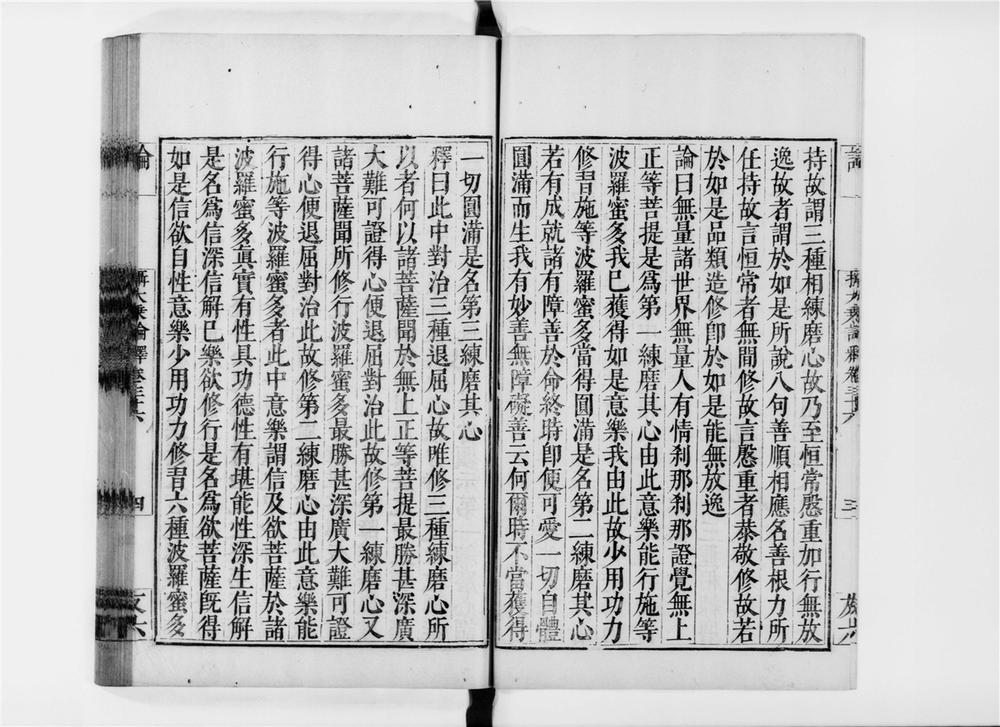 持故謂三種相練磨心故乃至恒常慇重加行無放
逸故者謂於如是所說八句善順相應名善根力所
任持故言恒常者無間修故言慇重者恭敬修故若
於如是品類造修卽於如是能無放逸
論曰無量諸世界無量人有情刹那刹那證覺無上
正等菩提是爲第一練磨其心由此意樂能行施等
波羅蜜多我已獲得如是意樂我由此故少用功力
修習施等波羅蜜多當得圓滿是名第二練磨其心
若有成就諸有障善於命終時卽便可愛一切自體
圓滿而生我有妙善無障礙善云何爾時不當獲得
一切圓滿是名第三練磨其心
釋曰此中對治三種退屈心故唯修三種練磨心所
以者何以諸菩薩聞於無上正等菩提最勝甚深廣
大難可證得心便退屈對治此故修第一練磨心又
諸菩薩聞所修行波羅蜜多最勝甚深廣大難可證
得心便退屈對治此故修第二練磨心由此意樂能
行施等波羅蜜多者此中意樂謂信及欲菩薩於諸
波羅蜜多眞實有性具功德性有堪能性深生信解
是名爲信深信解已樂欲修行是名爲欲菩薩旣得
如是信欲自性意樂少用功力修習六種波羅蜜多
論
大乘論釋卷
四